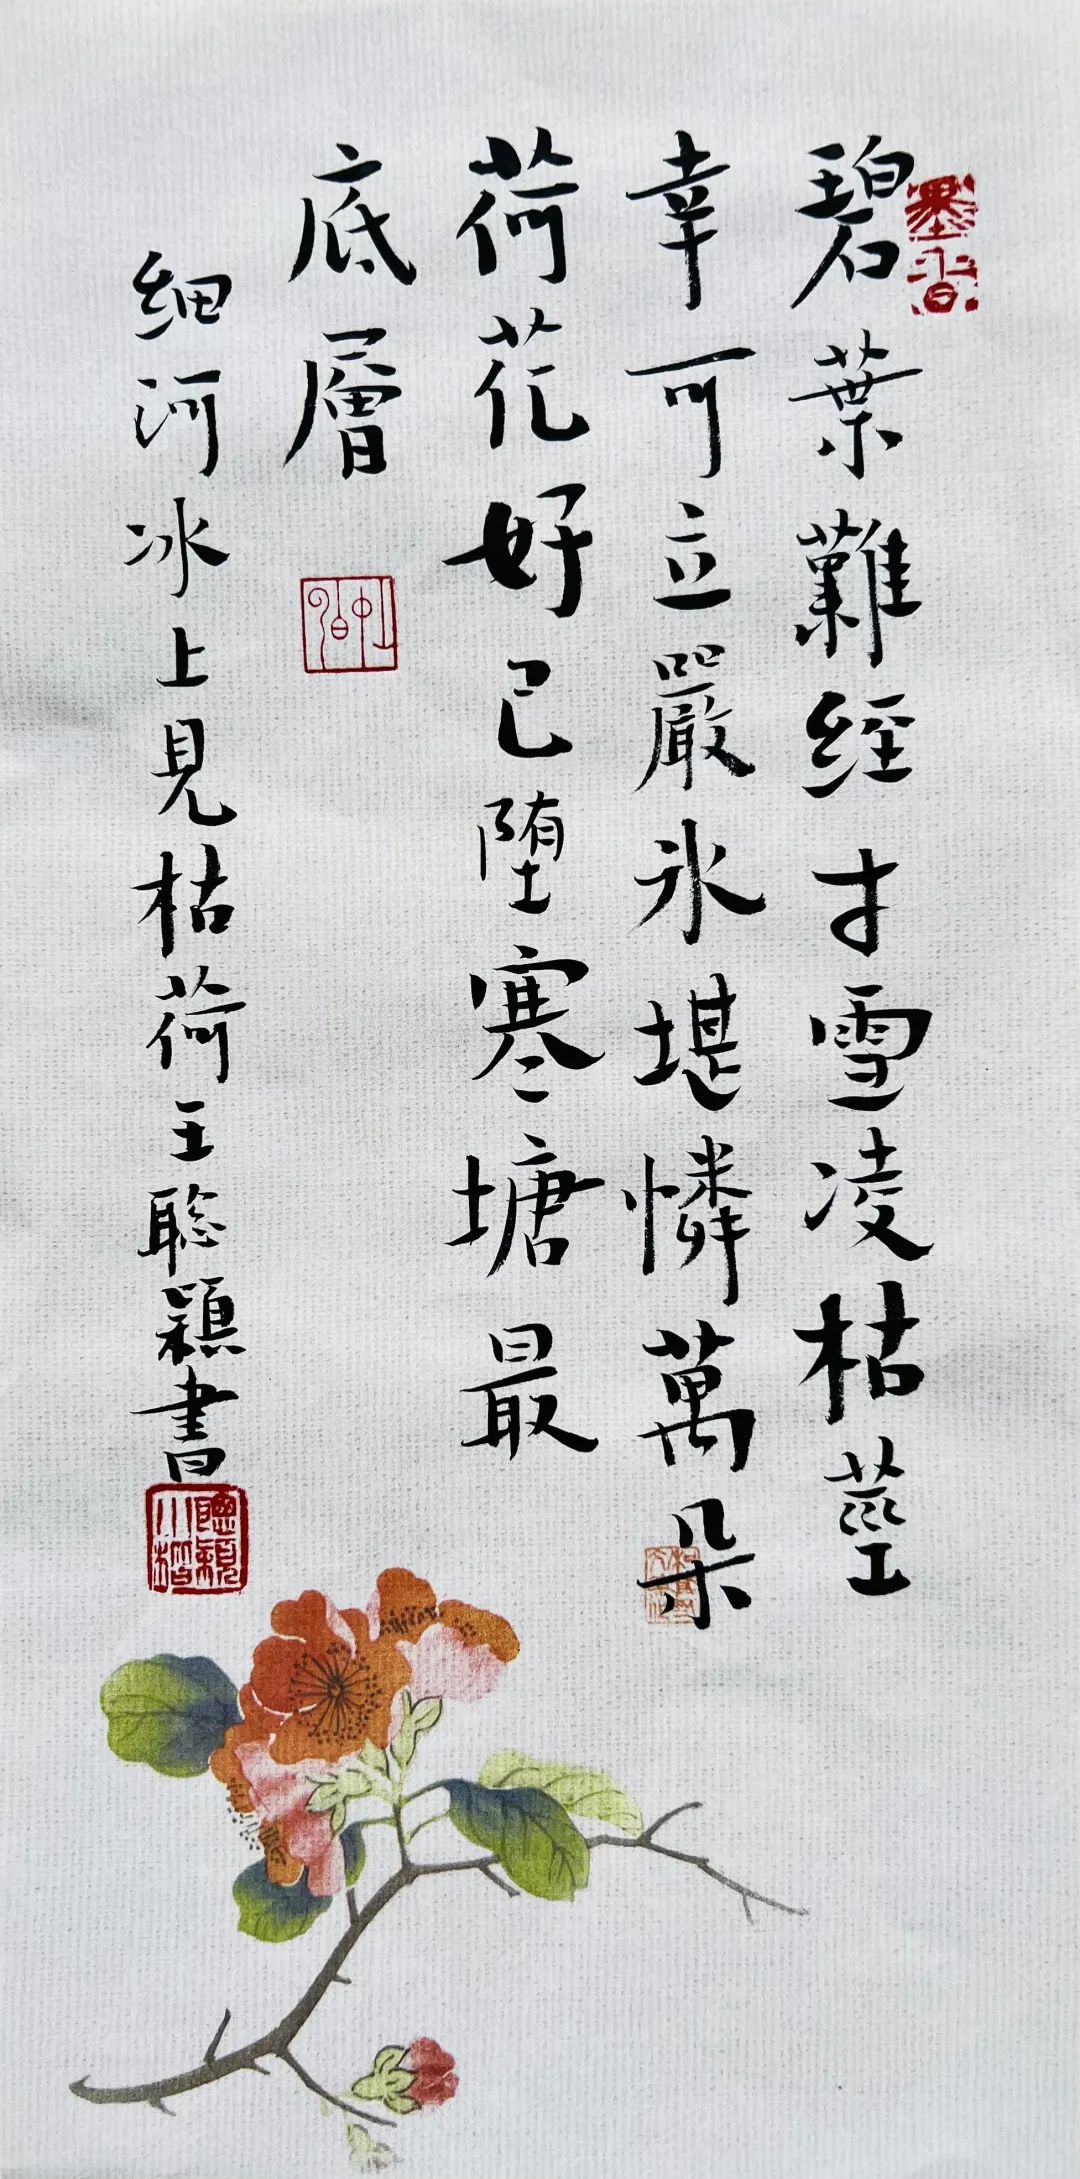 碧葉難經才雪凌枯莖
幸可立嚴氷堪憐萬朵
荷花好已堕寒塘最
底層
細河冰上見枯荷王聪穎書
墨香